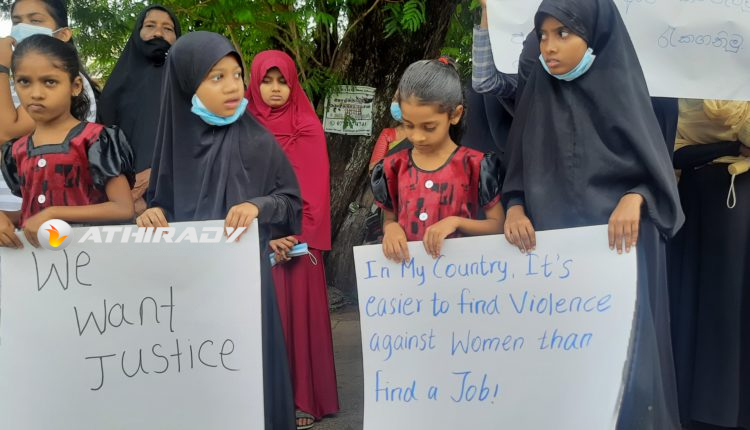 ATHIRADY
We
want
Justice
In My Country, It's
easier to find Violence
against Women than
find a Job!
රැකගනිමු